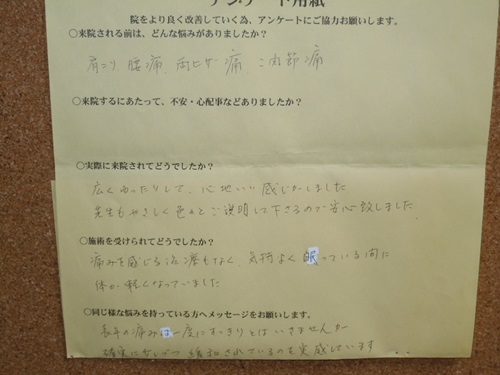 アンケート用紙
院をより良く改善していく為、アンケートにご協力お願いします。
○来院される前は、どんな悩みがありましたか?
肩こり 腰痛、両ヒザ痛 こ関節痛
○来院するにあたって、不安・心配事などありましたか?
○実際に来院されてどうでしたか?
広くゆったりして、心地いい感じがしました
先生もやさしく色々とご説明して下さるので安心致しました
○施術を受けられてどうでしたか?
痛みを感じる治療もなく、気持よく眠っている間に
体が軽くなっていました
○同じ様な悩みを持っている方へメッセージをお願いします。
長年の痛みは一度にすっきりとはいきませんが
確実に少しづつ緩和されているのを実感しています